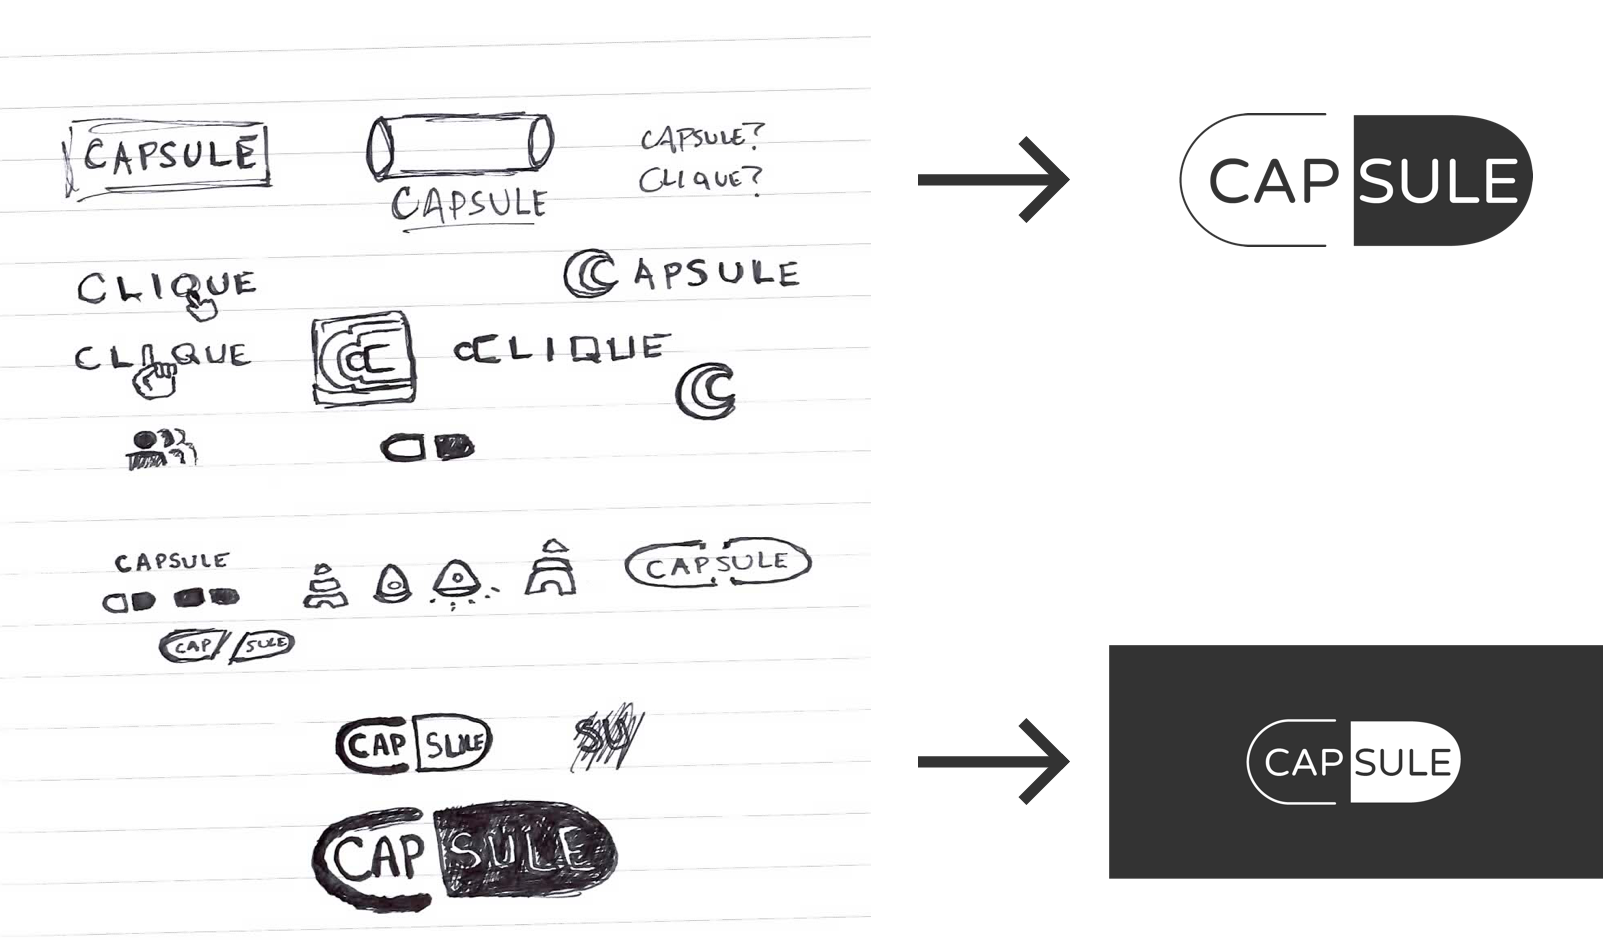 CAPSULE
CAPSULE
CAPSULE?
CLIQUE?
CAPSULE
CLIQUE
CAPSULE
CLIQUE
CC
CCLIQUE
CC
CAPSULE
CAPSULE
CAP/SULE
CAP SULE
SU
CAPSULE
CAP SULE